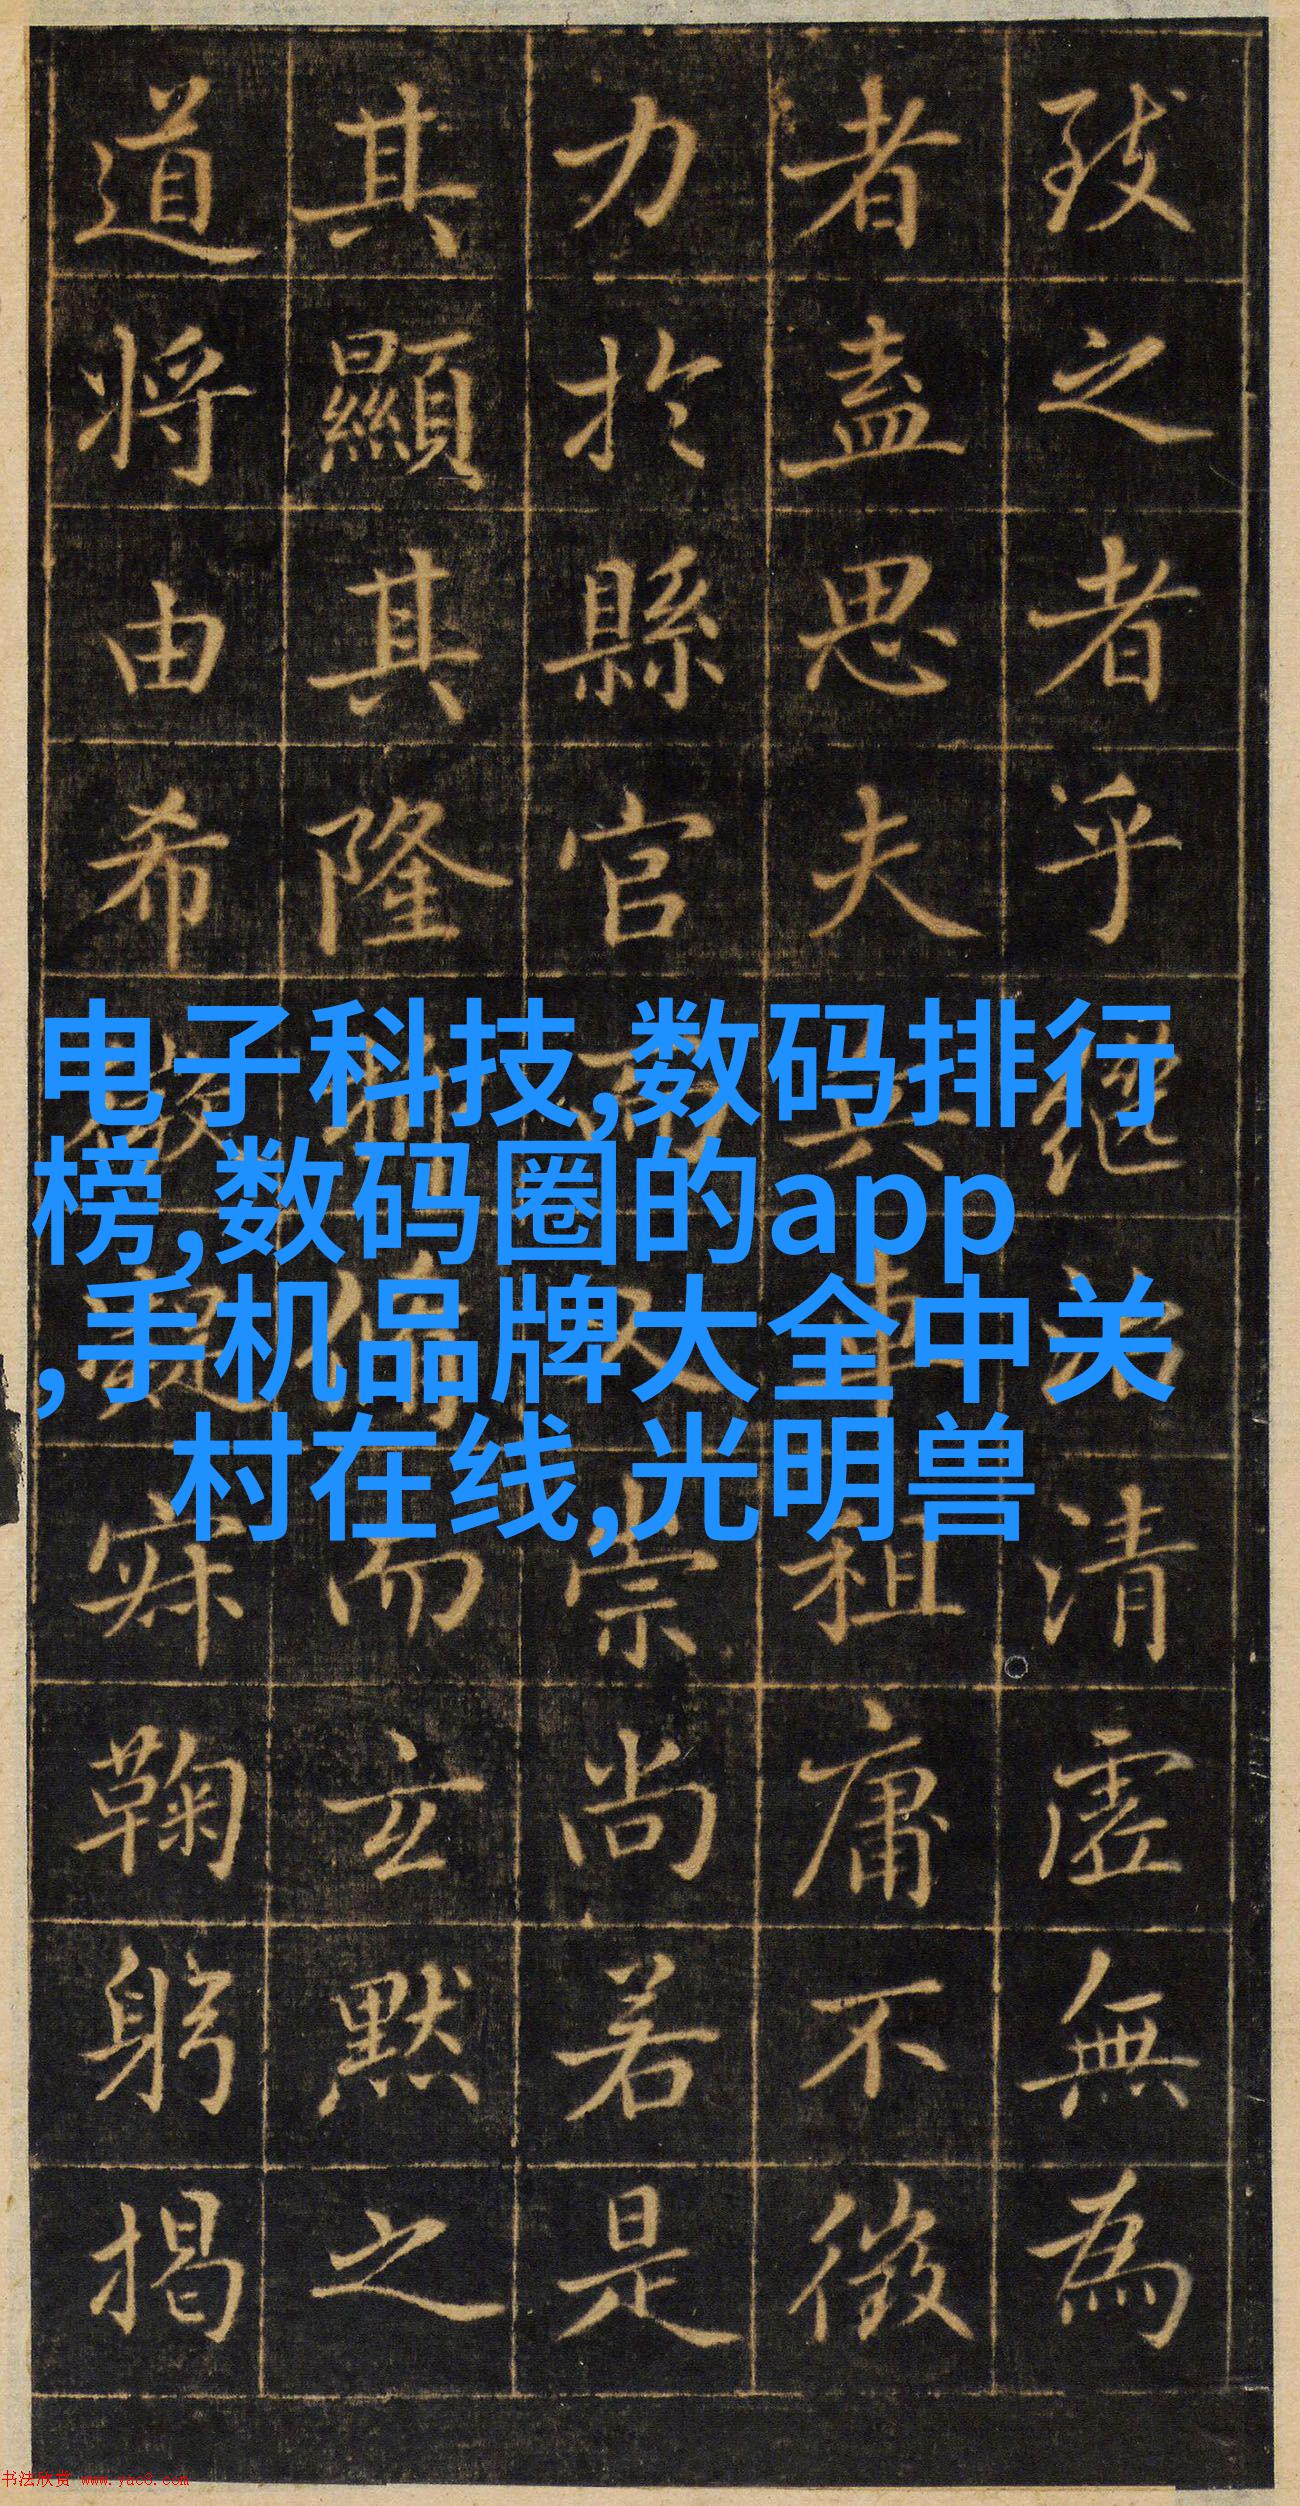 致之者乎继清虛無為
者盖思夫兵車租庸不徵
力於縣官而又崇尚若是
其顯其隆則脩而玄默之
道將由希寂鞠躬揭
电子科技,数码排行
榜,数码圈的app
,手机品牌大全中关
村在线,光明兽
书法欣赏 www.yac8.com